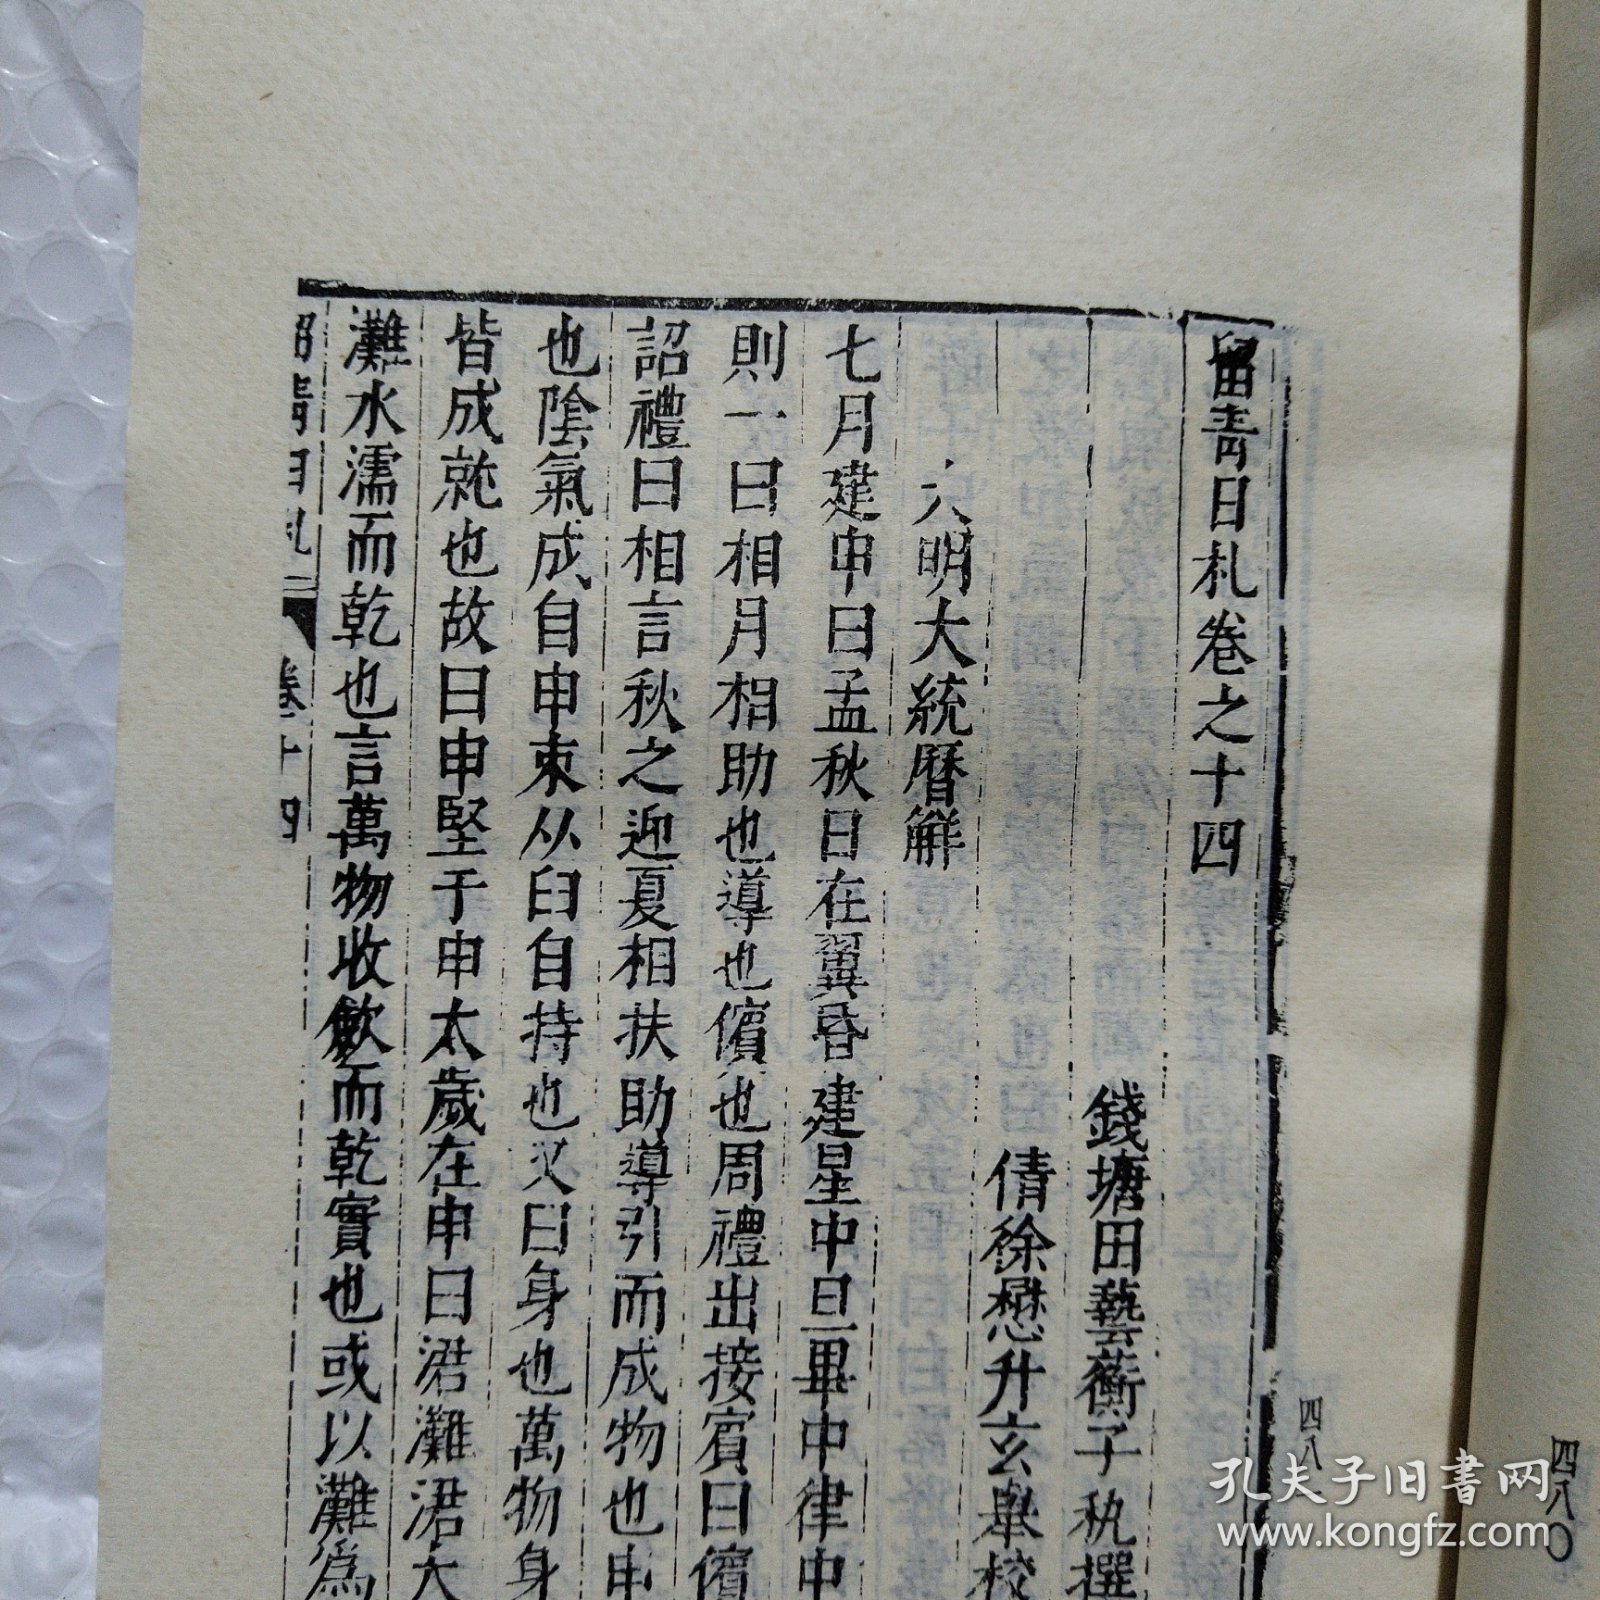 留青日札卷之十四
錢塘田藝蘅子秇撰
倩徐懋升玄舉校
大明大統曆解
七月建申曰孟秋日在翼昏建星中旦畢中律中
則一曰相月相助也導也儐也周禮出接賓曰儐
詔禮曰相言秋之迎夏相扶助導引而成物也申
也陰氣成自申束从臼自持也又曰身也萬物身
皆成就也故曰申堅于申太歲在申曰涒灘涒大
灘水濡而乾也言萬物收歛而乾實也或以灘為
留青日札 卷十四
四八
四八〇
孔夫子旧书网
www.kongfz.com